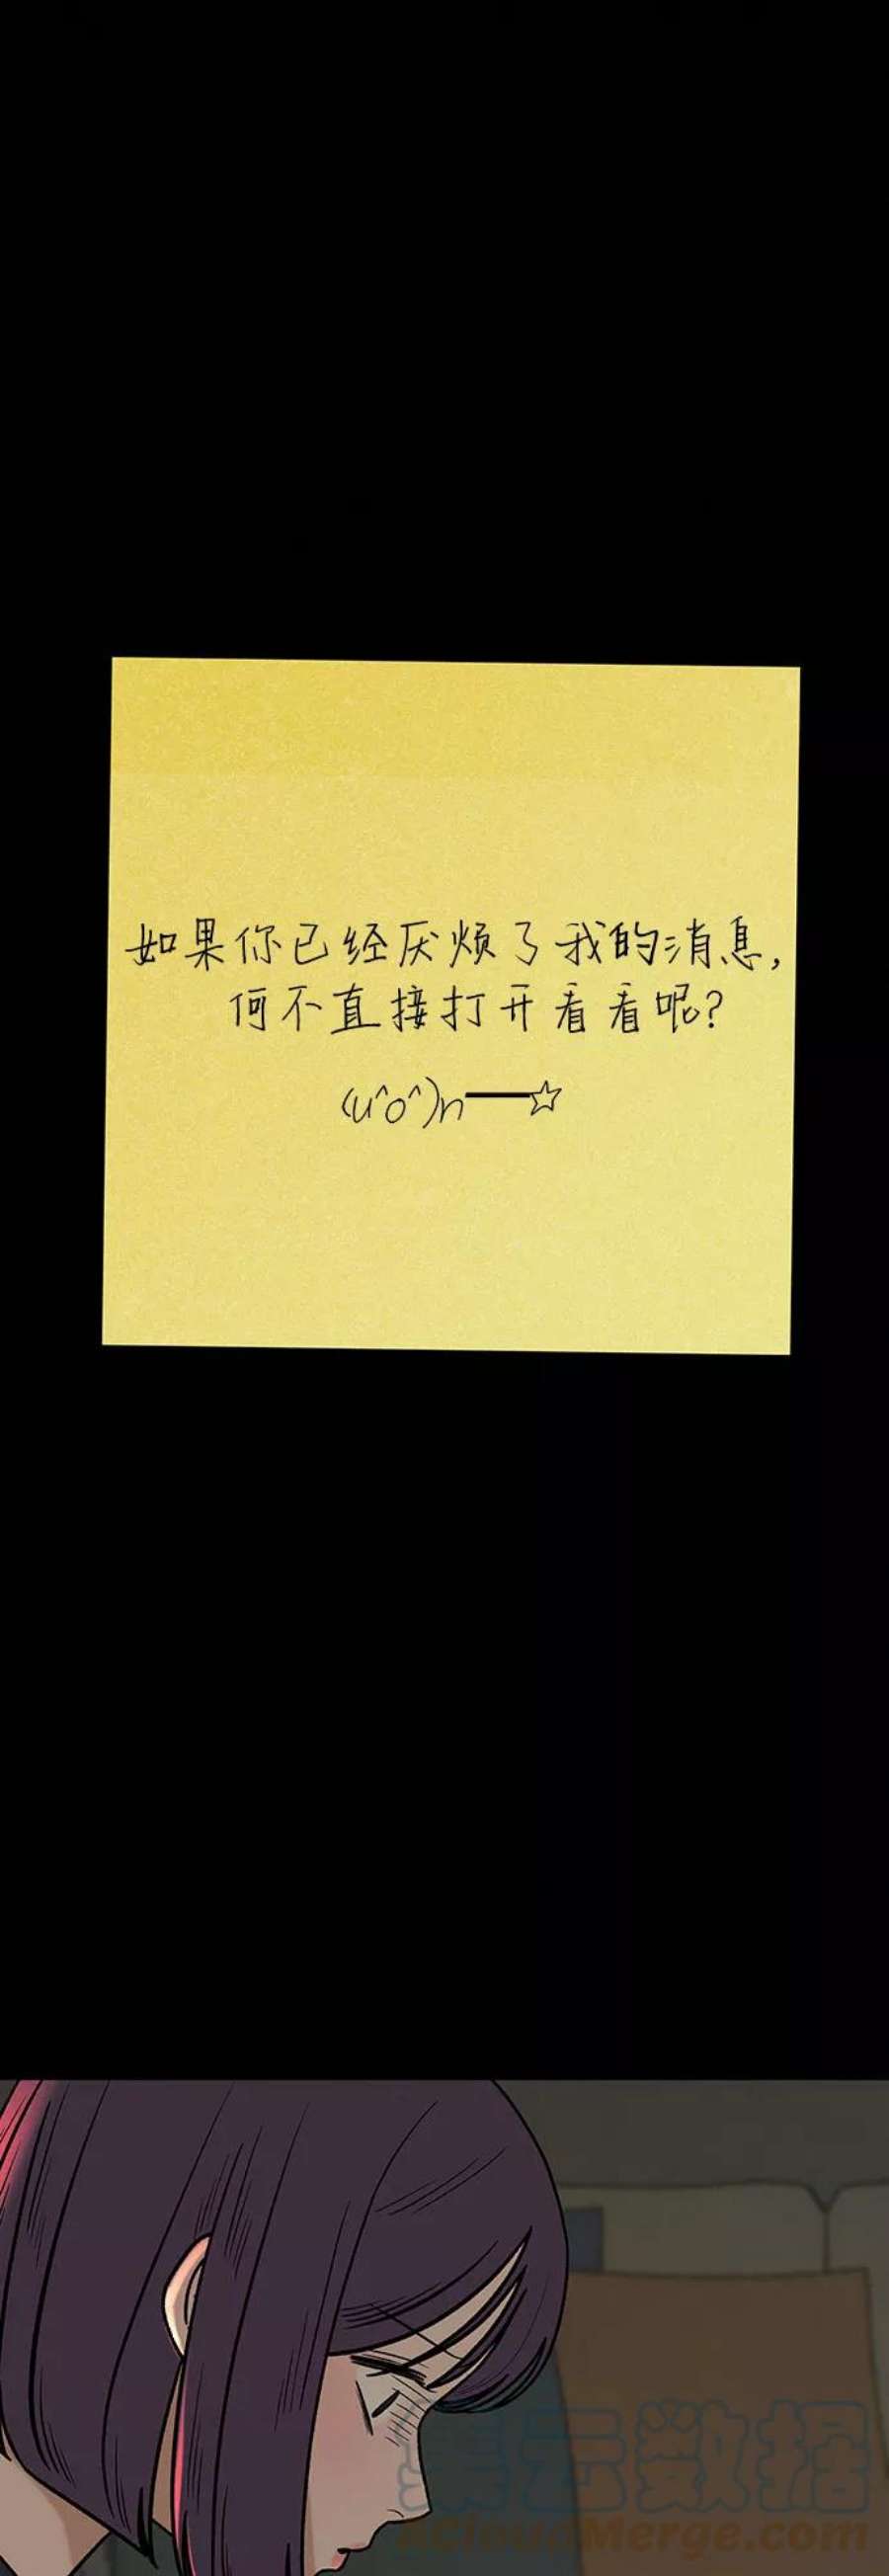 如果你已经厌烦了我的消息,
何不直接打开看看呢?
(u^o^)n━━☆
集云数据
ACloudMerge.com